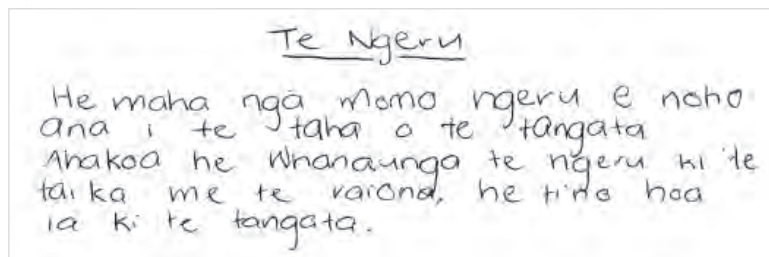 Te Ngeru
He maha ngā momo ngeru e noho
ana i te taha o te tangata
Ahakoa he whanaunga te ngeru ki te
taika me te raiona, he tino hoa
ia ki te tangata.